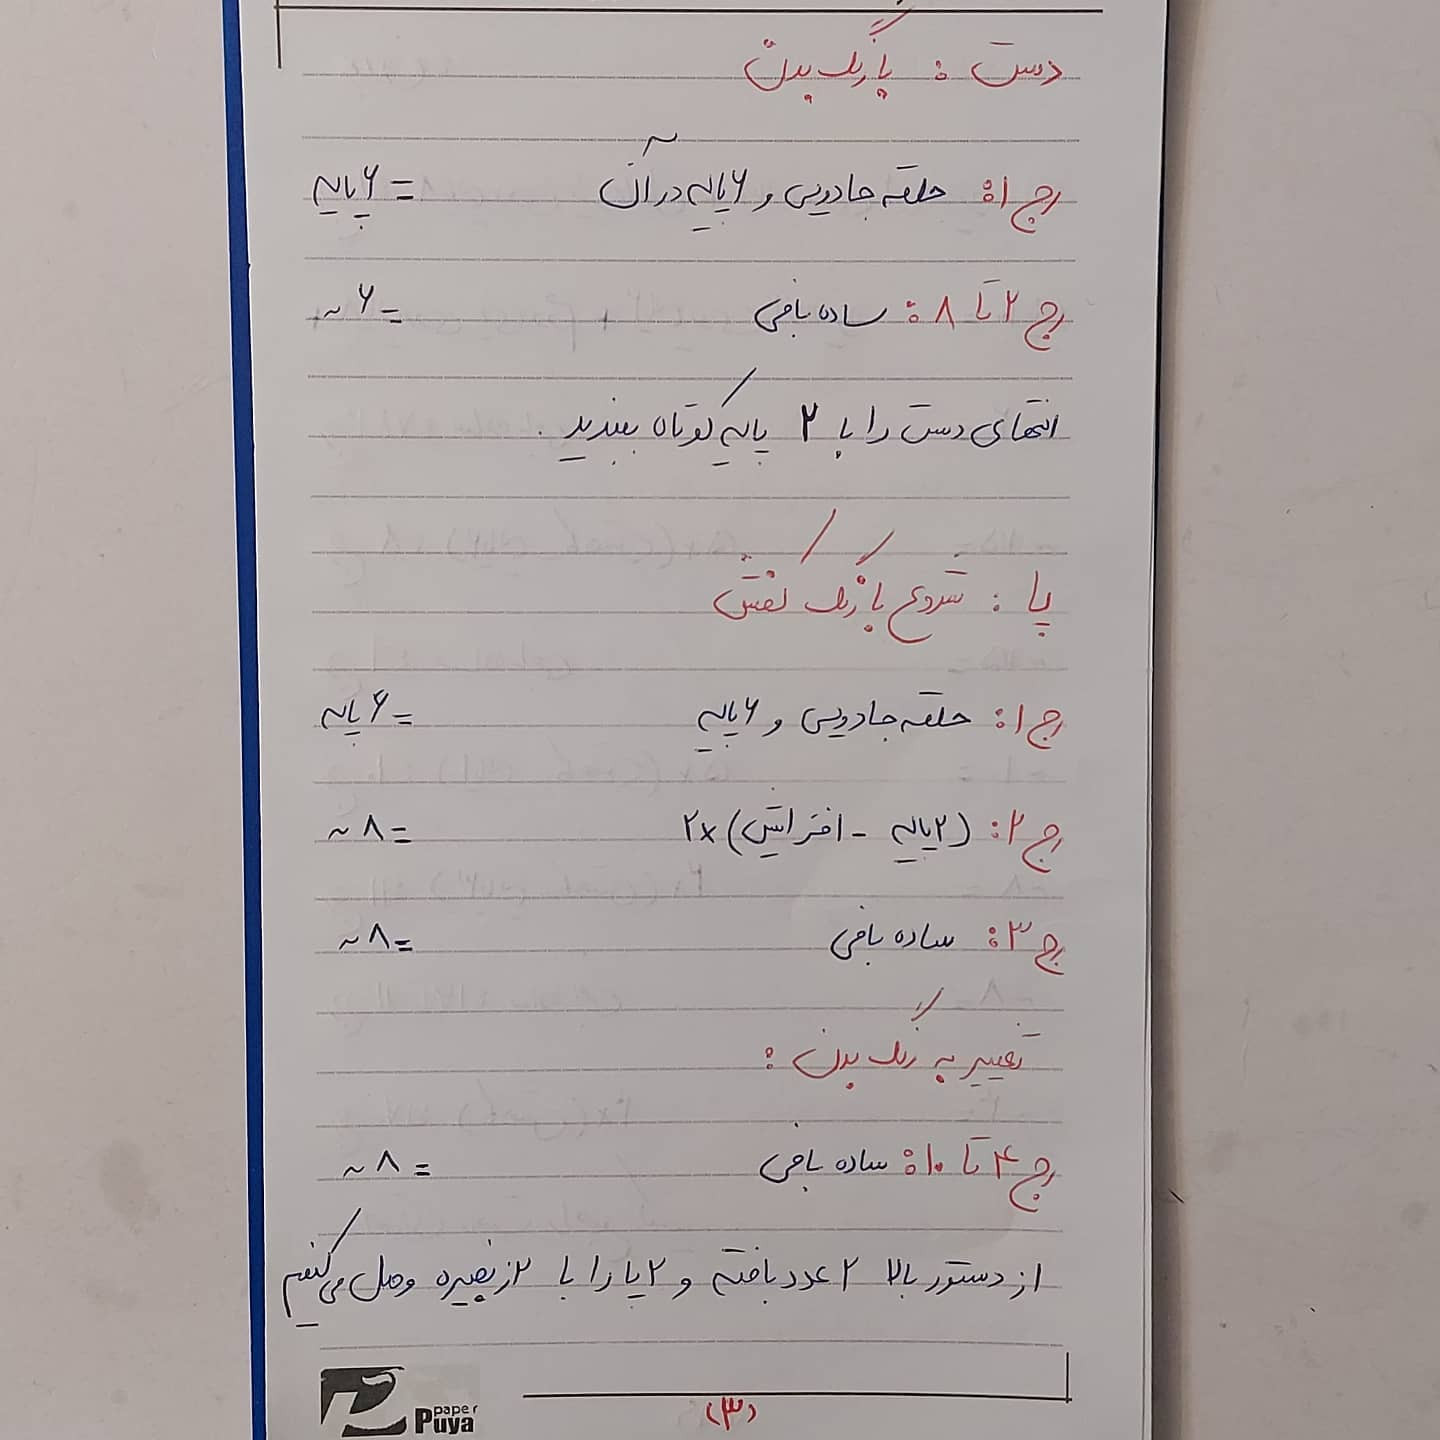 دست : با رنگ بدن
رج ۱: حلقه جادویی و ۶ پایه در آن = ۶ پایه
رج ۲ تا ۸: ساده بافی = ۶ ~
انتهای دست را با ۲ پایه کوتاه ببندید .
پا : شروع با رنگ کفش
رج ۱: حلقه جادویی و ۶ پایه = ۶ پایه
رج ۲: (۲ پایه - افزایش)×۲ = ۸ ~
رج ۳: ساده بافی = ۸ ~
تغییر به رنگ بدن :
رج ۴ تا ۱۰: ساده بافی = ۸ ~
از دستور بالا ۲ عدد بافته و ۲ پا را با ۲ زنجیره وصل می‌کنیم
paper
Puya
(۳)